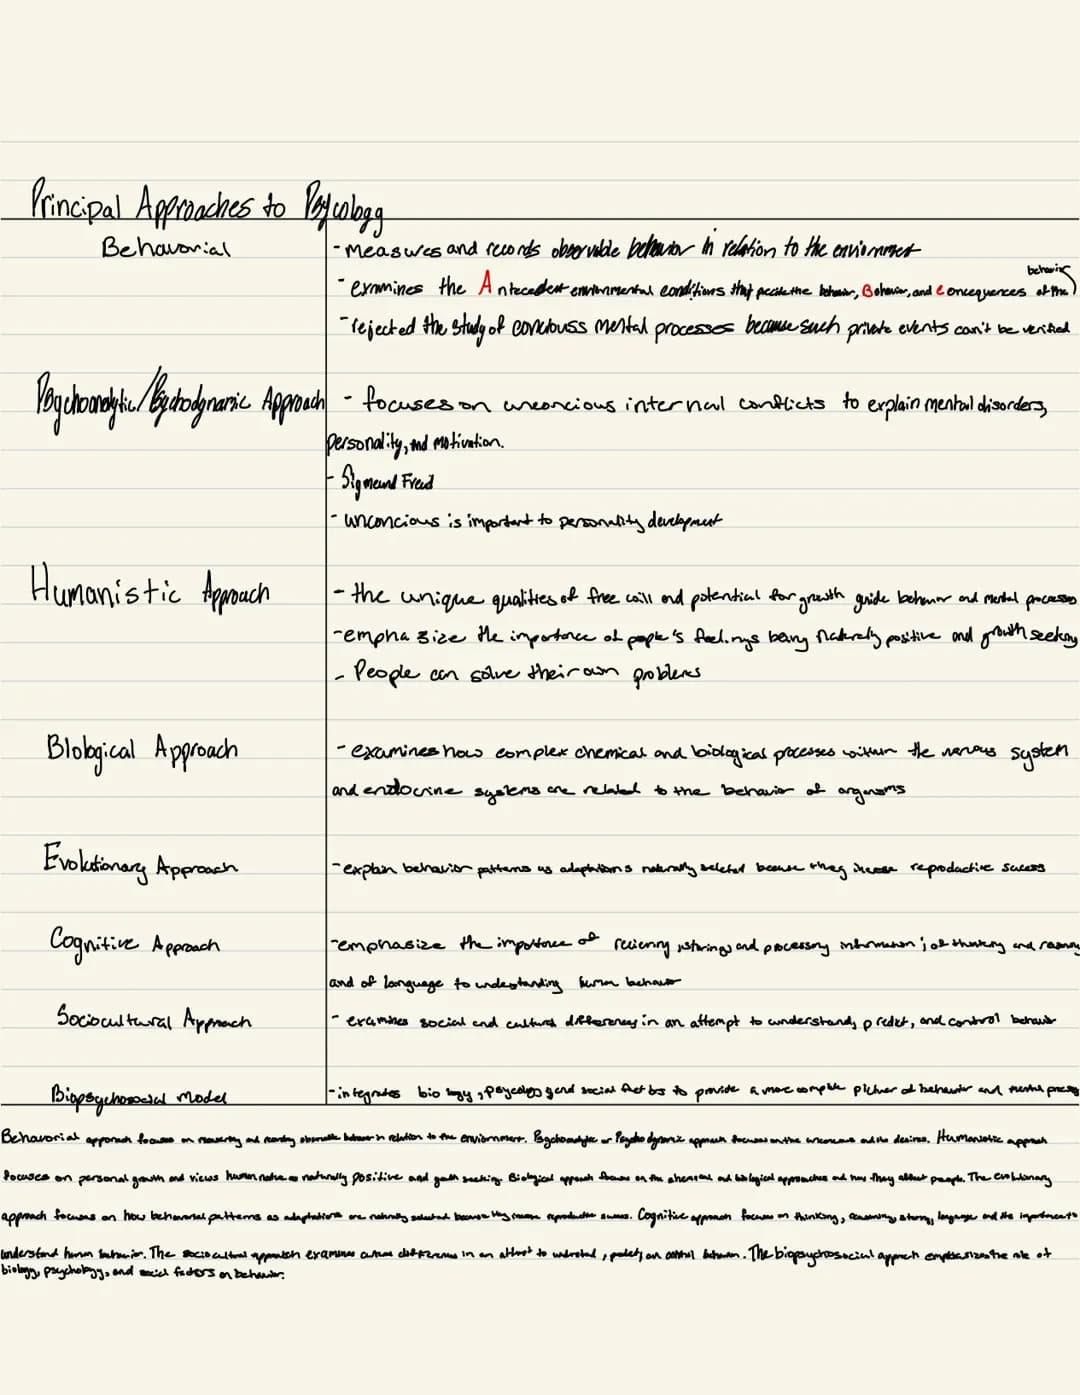 Principal Approaches to Psycology
Behavorial
- measures and records observable behavior in relation to the enviornment
behavior
- exmines the Antecedent environmental conditions that precede the behavior, Behavior, and Concequences of the
- rejected the study of conciouss mental processes because such private events can't be verified
Psychoanalytic/Psychodynamic Approach
- focuses on unconcious internal conflicts to explain mental disorders,
personality, and motivation.
- Sigmund Freud
- unconcious is important to personality development
Humanistic Approach
- the unique qualities of free will and potential for growth guide behavior and mental processes
- emphasize the importance of people's feelings being naturally positive and growth seeking
- People can solve their own problems
Biological Approach
- examines how complex chemical and biological processes within the nervous system
and endocrine systems are related to the behavior of
Evolutionary Approach
- explain behavior patterns as adaptations naturally selected because they increase reproductive
Cognitive Approach
- emphasize the importance of storing, and processing information; of thinking and
and of language to understanding human behavior
Sociocultural Approach
- examines social and cultural differences in an attempt to understand, predict, and control behavior
Biopsychosocial model
- integrates biology, and social factors to provide a more complete of behavior and mental
Behavorial approach focuses on and observable behavior in relation to the enviornment. or Psychodynamic approach focuses on the and the desires. Humanistic approach
focuses on personal growth and views human nature as naturally positive and growth seeking. Biological approach focuses on the chemical and biological approaches and how they affect people. The evolutionary
approach focuses on how behavioral patterns as adaptations are naturally selected because they reproductive Cognitive approach focuses on thinking, reasoning, storing, language and the importance to
understand human behavior. The sociocultural approach examines differences in an to behavior. The biopsychosocial approach emphasizes the role of
biology, psychology, and social factors on behavior.